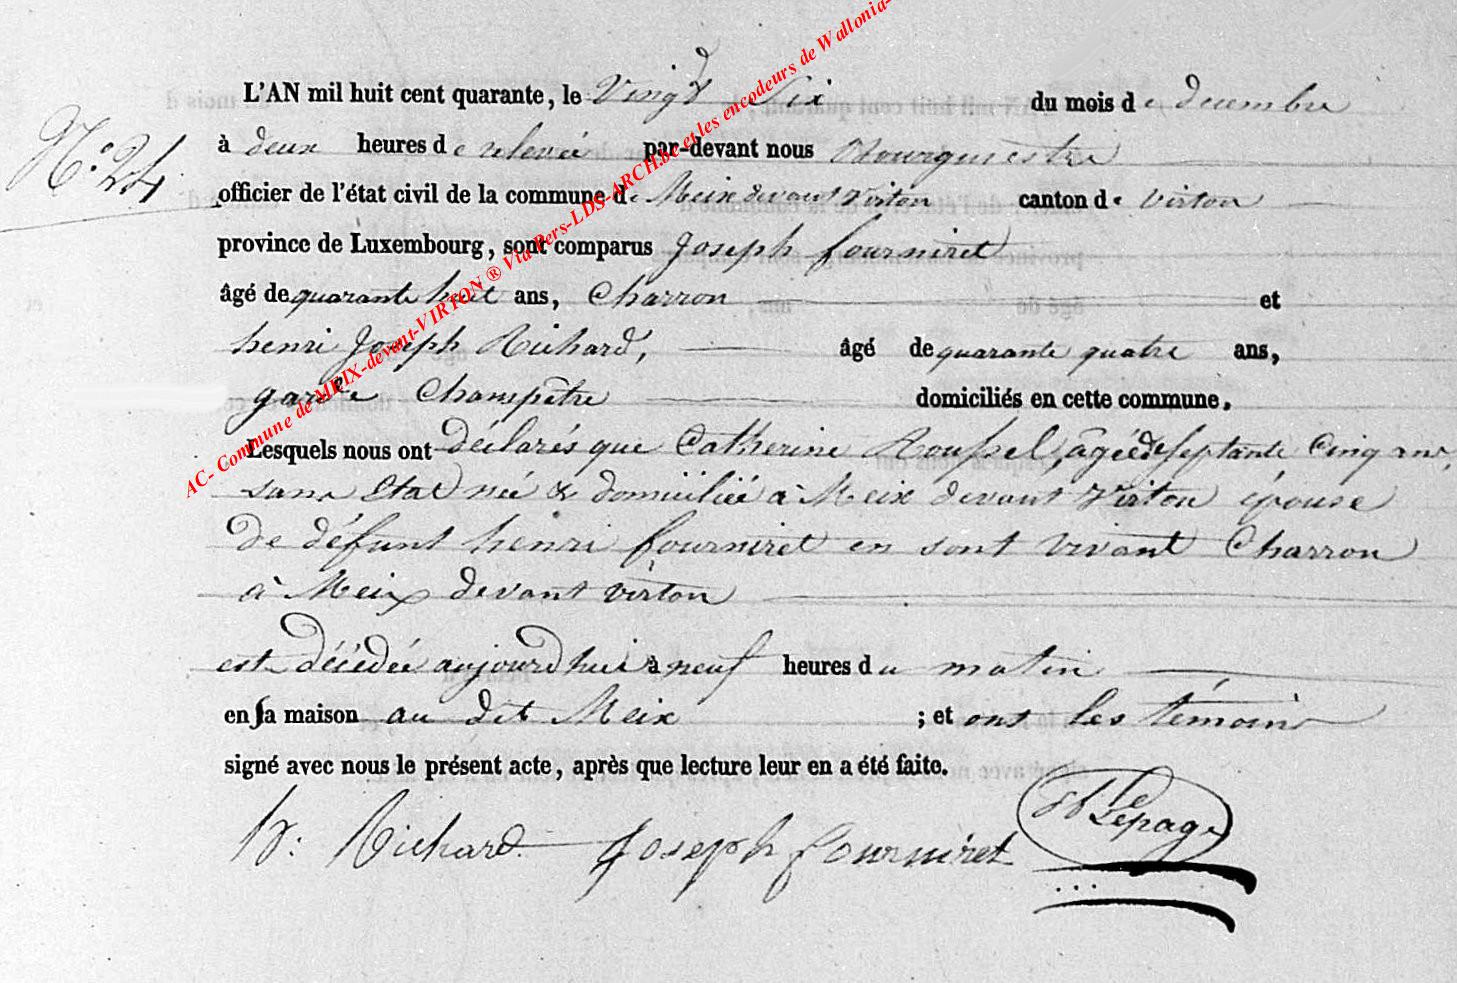 N.° 24
L'AN mil huit cent quarante, le Vingt Six du mois de decembre
à deux heures de relevée par-devant nous Bourgmestre
officier de l'état civil de la commune de Meix devant Virton canton de Virton
province de Luxembourg, sont comparus Joseph fourniret
âgé de quarante huit ans, Charron et
henri Joseph Richard, âgé de quarante quatre ans,
garde Champêtre domiciliés en cette commune.
Lesquels nous ont déclarés que Catherine Roussel, agée de septante Cinq ans,
sans Etat née & domiciliée à Meix devant Virton épouse
de défunt henri fourniret en sont vivant Charron
à Meix devant Virton
est décédée aujourd'hui à neuf heures du matin
en sa maison au dit Meix ; et ont les témoins
signé avec nous le présent acte, après que lecture leur en a été faite.
h. Richard Joseph fourniret Lepage
AC- Commune de MEIX-devant-VIRTON ® Via Pers-LDS-ARCH.be et les encodeurs de Wallonia-